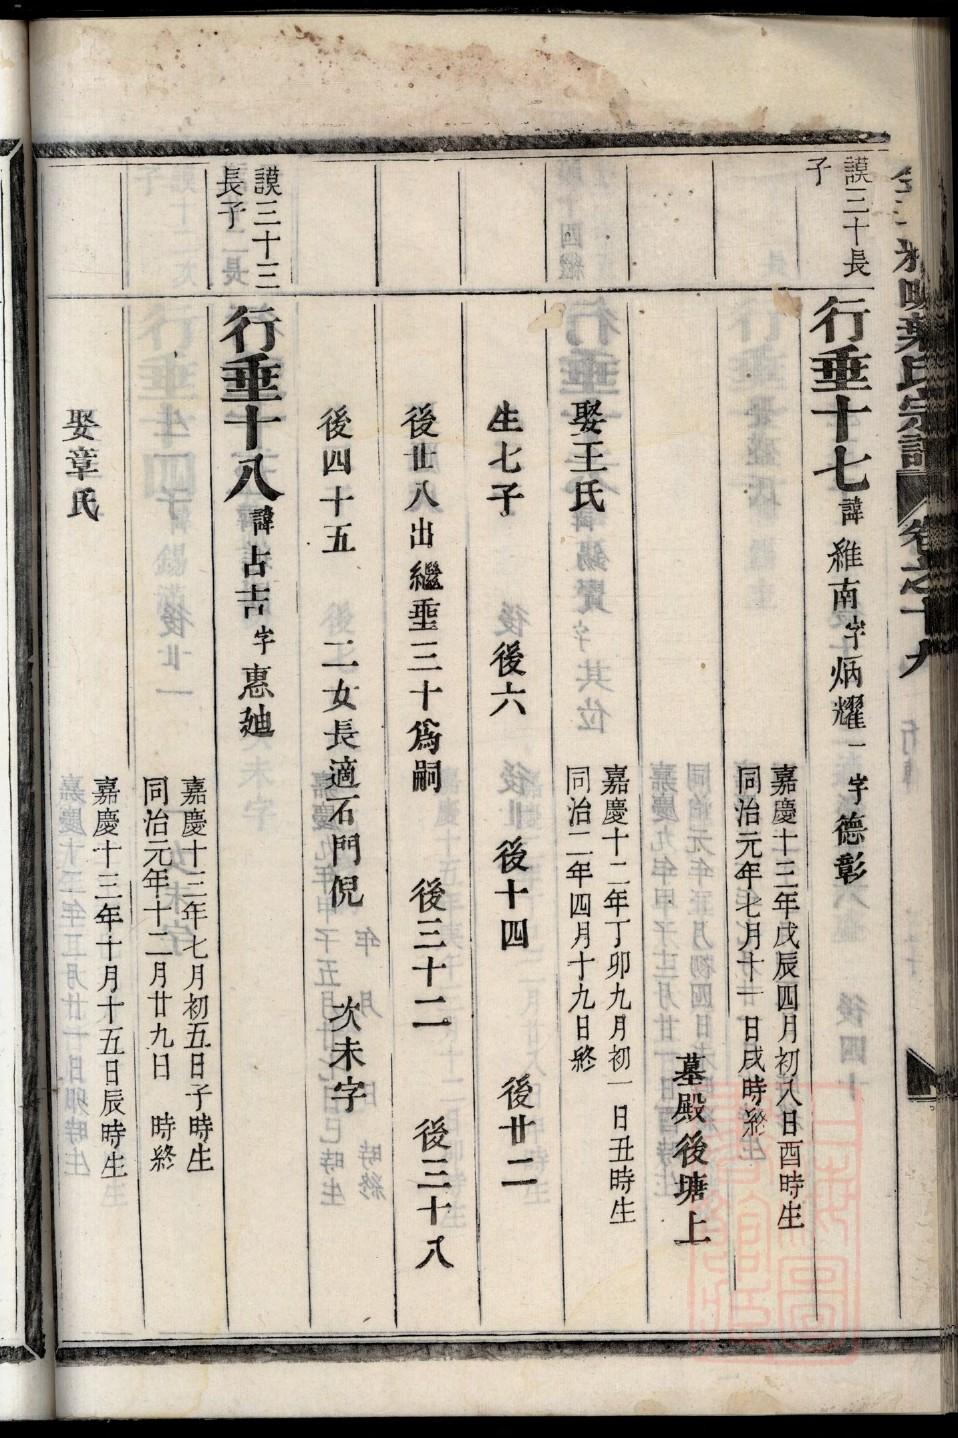 葉氏宗譜 卷之十九
謨三十長
子
行垂十七 諱維南 字炳耀 一字德彰
嘉慶十三年戊辰四月初八日酉時生
同治元年七月十一日戌時終
墓殿後塘上
娶王氏
嘉慶十二年丁卯九月初一日丑時生
同治二年四月十九日終
生七子 後六 後十四 後廿二
後廿八出繼垂三十爲嗣 後三十二 後三十八
後四十五 二女長適石門倪 次未字
謨三十三
長子
行垂十八 諱占吉 字惠廸
嘉慶十三年七月初五日子時生
同治元年十二月廿九日 時終
娶章氏
嘉慶十三年十月十五日辰時生
年 月 日 時終